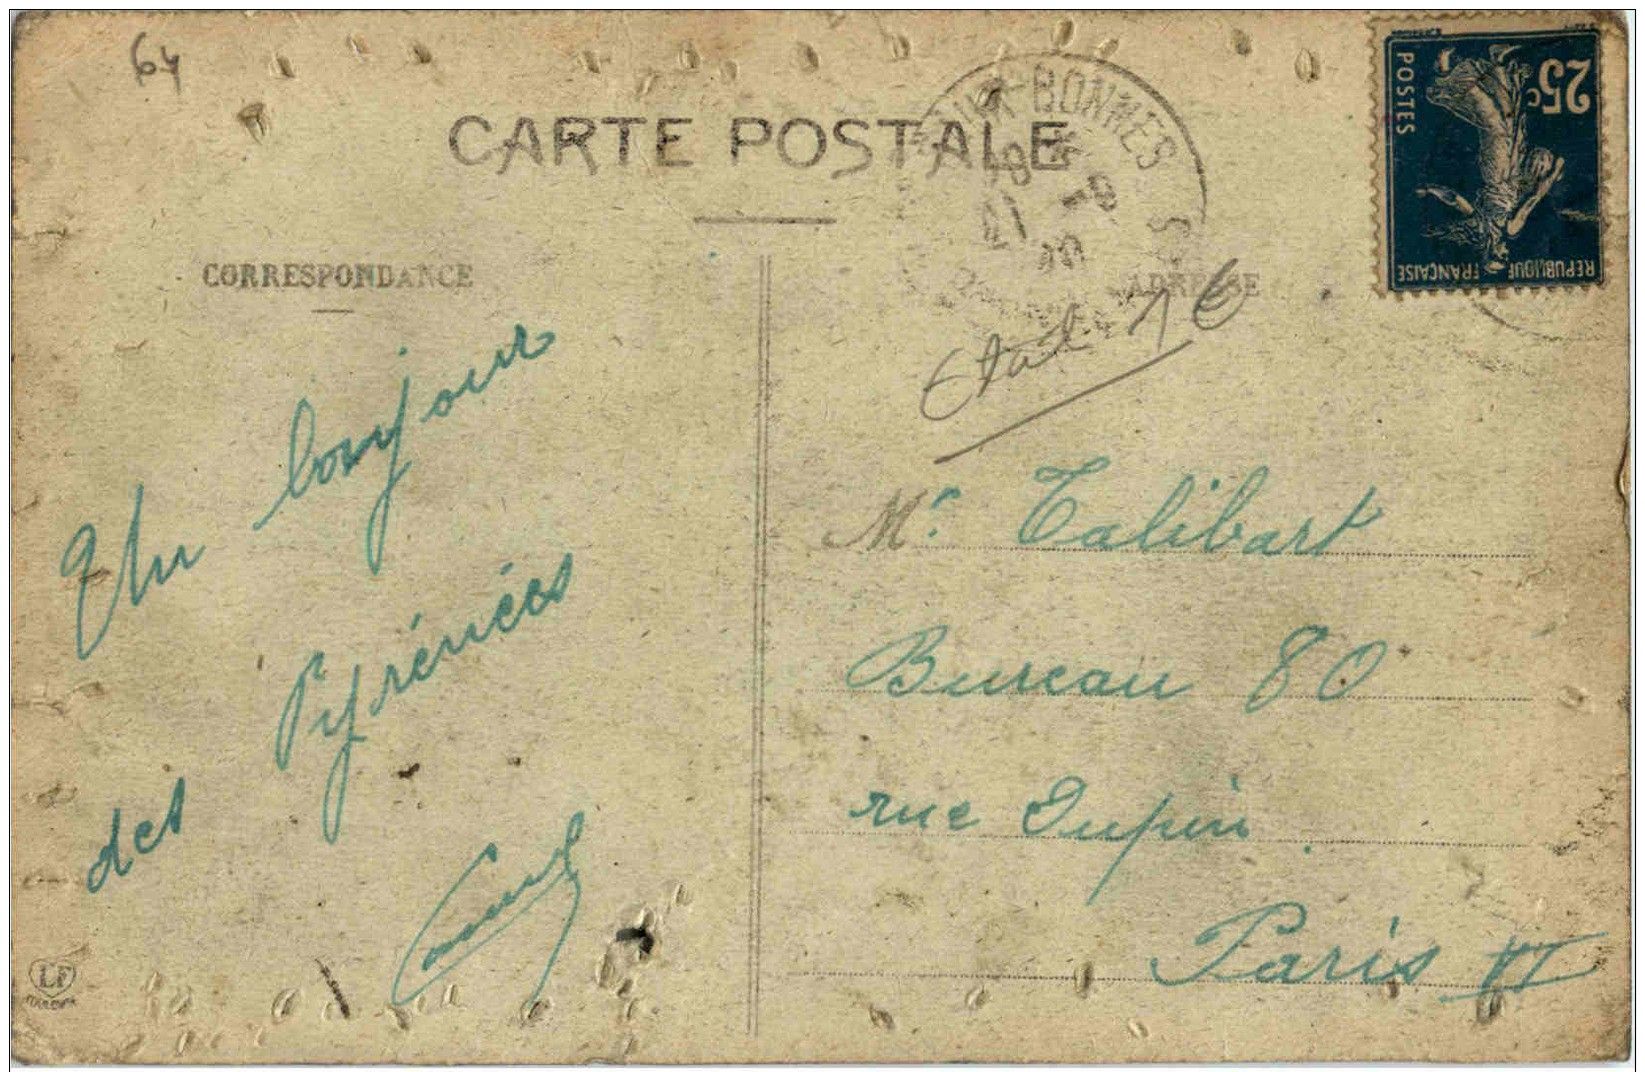 64
CARTE POSTALE
CORRESPONDANCE
ADRESSE
BONNES
25c
POSTES
REPUBLIQUE FRANÇAISE
Etat 1 €
Un bonjour
des Pyrénées
Mr. Talibart
Bureau 80
rue Dupin
Paris VI
LF